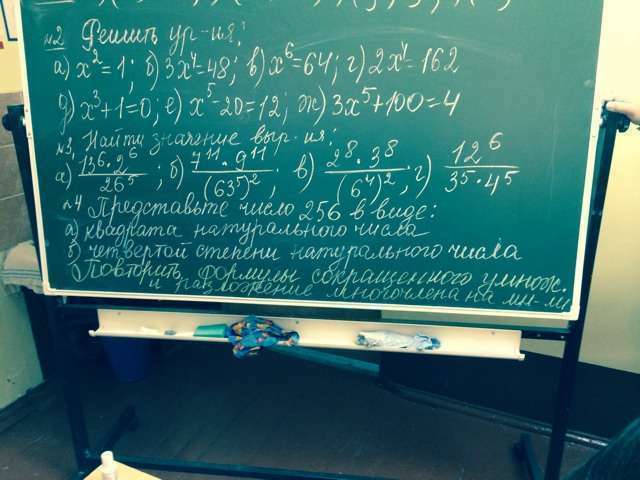 №2 Решить ур-ия:
а) x² = 1; б) 3x⁴ = 48; в) x⁶ = 64; г) 2x⁴ = 162
д) x³ + 1 = 0; е) x⁵ - 20 = 12; ж) 3x⁵ + 100 = 4
№3. Найти значение выр-ия:
а) 13⁶ · 2⁶ / 26⁵; б) 7¹¹ · 9¹¹ / (63⁵)²; в) 2⁸ · 3⁸ / (6⁴)²; г) 12⁶ / 3⁵ · 4⁵
№4 Представьте число 256 в виде:
а) квадрата натурального числа
б) четвертой степени натурального числа
Повторить формулы сокращенного умнож.
и разложение многочлена на мн-ли